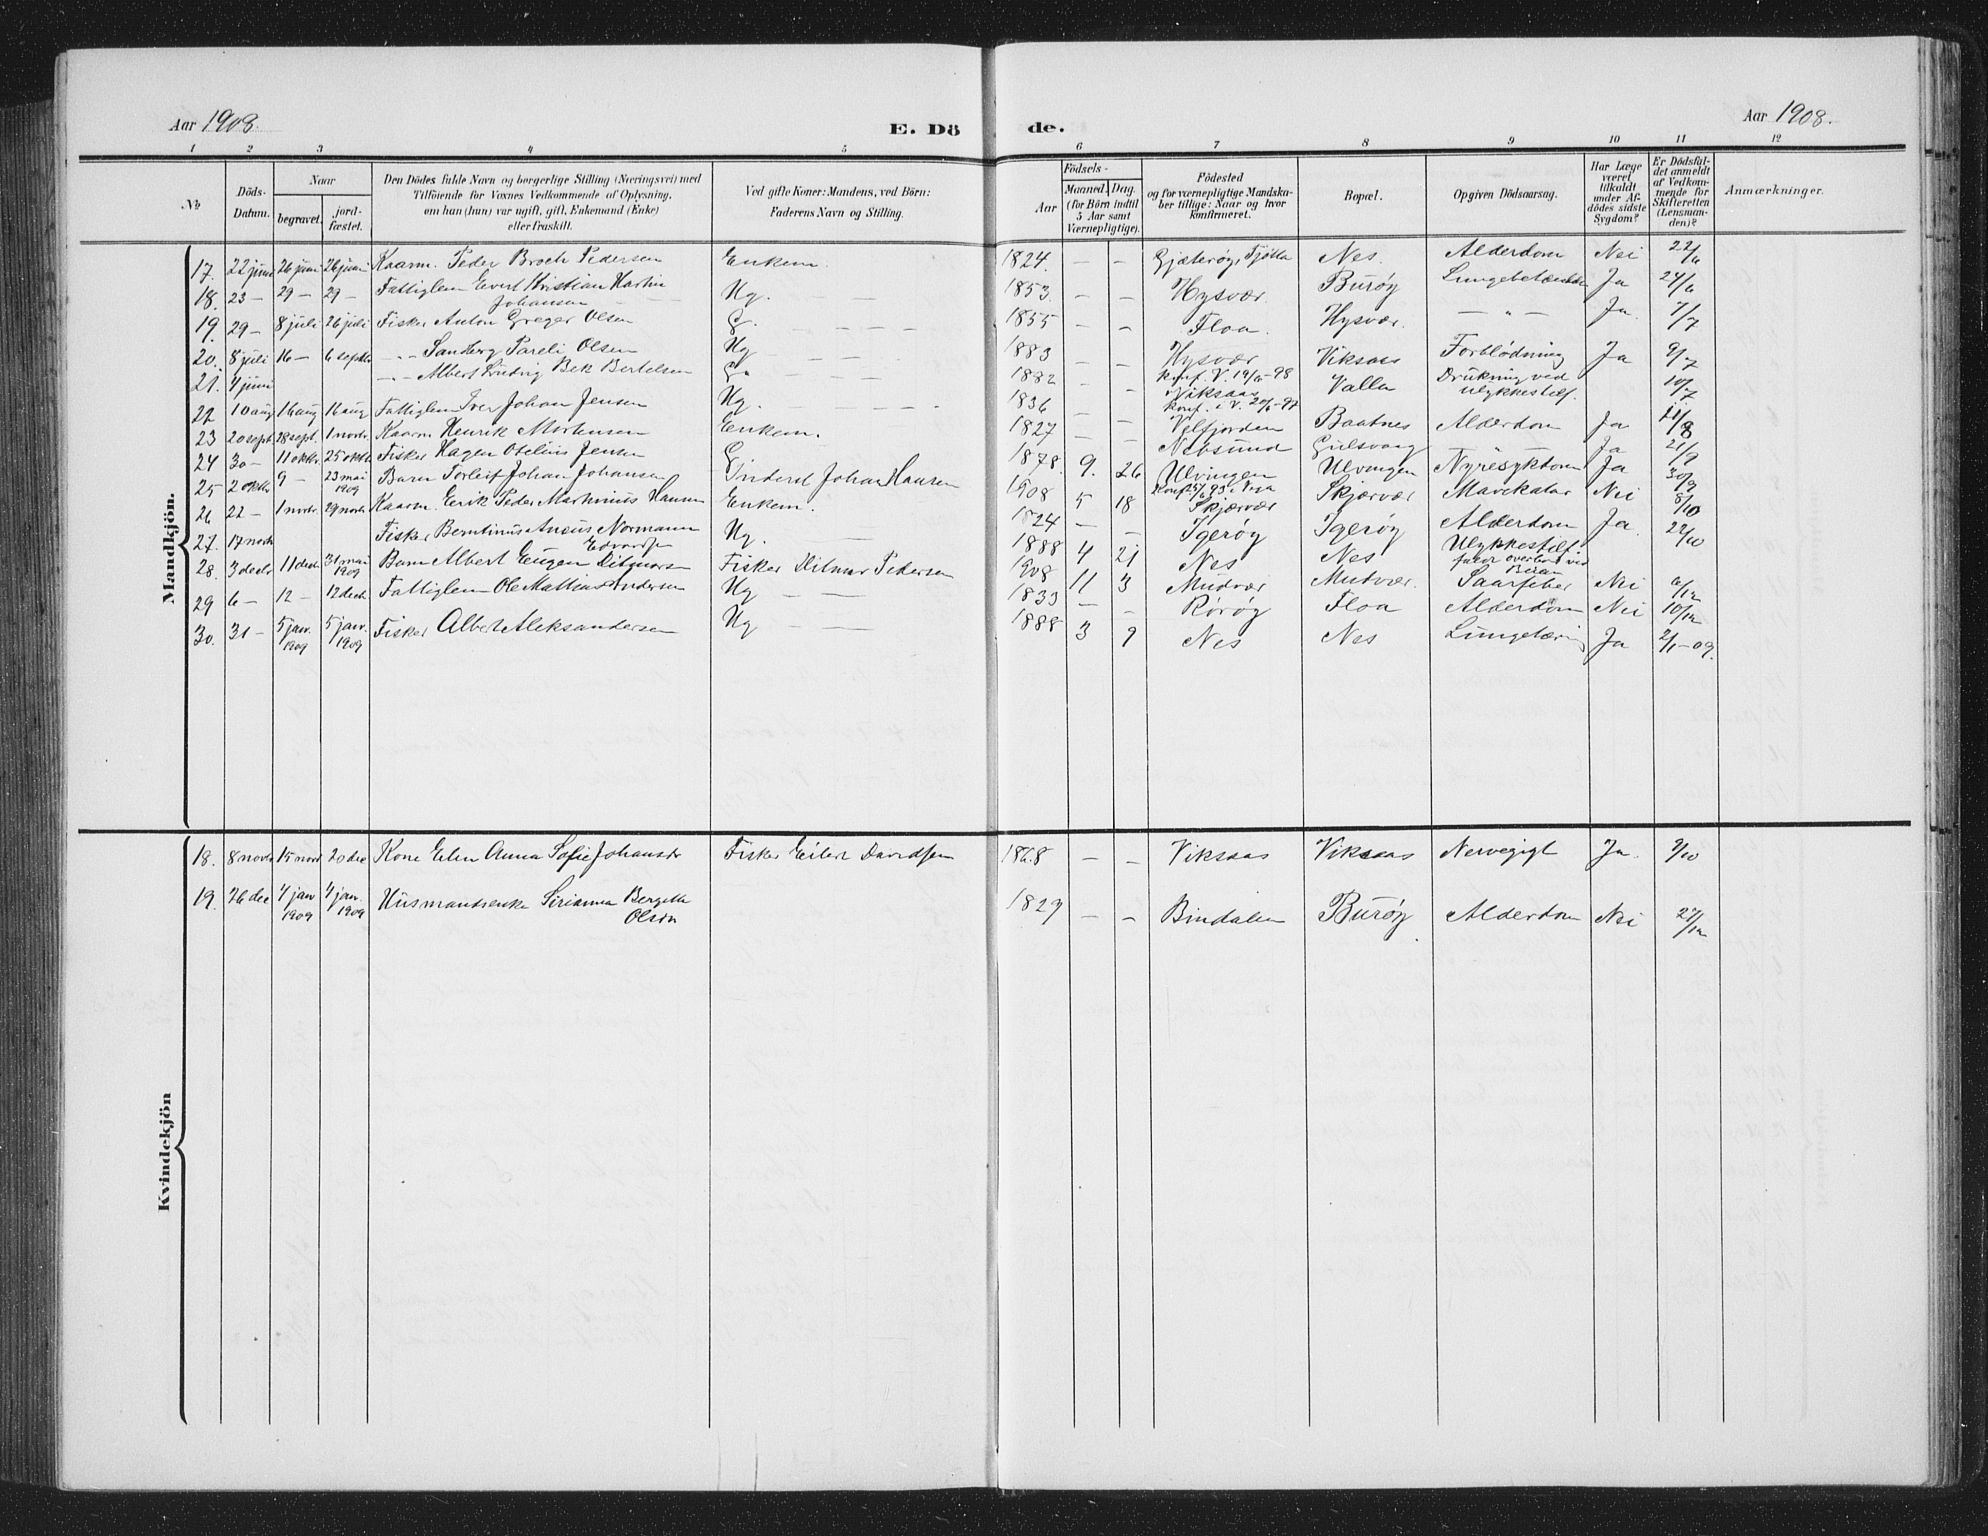 Aar 1908.
E. Dö
de.
Aar 1908.
1 2 3 4 5 6 7 8 9 10 11 12
№
Döds-
Datum.
Naar
begravet.
jord-
fæstet.
Den Dödes fulde Navn og borgerlige Stilling (Næringsvei) med
Tilföiende for Voxnes Vedkommende af Oplysning,
om han (hun) var ugift, gift, Enkemand (Enke)
eller fraskilt.
Ved gifte Koner: Mandens, ved Börn:
Faderens Navn og Stilling.
Födsels-
Aar
Maaned. Dag.
(for Börn indtil
5 Aar samt
Værnepligtige).
Födested
og for værnepligtige Mandska-
ber tillige: Naar og hvor
konfirmeret.
Bopæl.
Opgiven Dödsaarsag.
Har Læge
været
tilkaldt
under Af-
dödes sidste
Sygdom?
Er Dödsfal-
det anmeldt
af Vedkom-
mende for
Skifteretten
(Lensman-
den)?
Anmærkninger.
Mandkjön.
17. 22 juni 26 juni 26 juni Kaarm. Peder Broch Pedersen Enkem. 1824. — — Gjæterøy, Tjøtta Nes. Alderdom Nei 22/6
18. 23 — 29 — 29 — Fattiglem Evert Kristian Martin Johansen Ug. 1853. — — Hysvær. Burøy Lungebetændelse Ja 24/6
19. 29 — 8 juli 26 juli Fisker Anton Greger Olsen G. — — — 1855 — — Floa. Hysvær. — „ — Ja. 1/7
20. 8 juli 16 — 6 septbr — „ — Olsen Ug 1883 — — Hysvær konf. V. 19/6-98 Viksaas Forblödning Ja 9/7
21. 4 juni — „ — Albert Ludvig Bek Bertelsen G. 1882 — — Viksaas konf. i V. 20/6-97 Valla Drukning ved ulykkestilf. 10/7
22 10 aug 16 aug 16 aug Fattiglem Iver Johan Jensen Ug. — — — 1836 — — Velfjorden Baatnes Alderdom Ja 21/8
23 20 sept. 28 sept. 1 novbr. Kaarm Henrik Mortensen Enkem. 1827 — — Nebsund Gulsvaag — Ja 21/9
24 30 — 11 oktbr 25 oktbr Fisker Hagen Otelius Jensen G. 1878. 9. 26 Ulvingen Ulvingen Nyresykdom Ja 30/9
25 2 oktbr 9 — 23 mai 1909 Barn Torleif Johan Johansen Inderst Johan Hansen 1908 5 18 Skjærvær Skjærvær Mavekatar Nei 8/10
26 22 — 1 novbr. 29 novbr. Kaarm. Erik Peder Martinus Hansen Enkem. 1824 — — Igerøy Igerøy Alderdom Ja. 22/10
27. 17 novb Fisker Berntinus Normann Edvardsen Ug. — 1888 4 21 Nes Nes Ulykkestilf.
28. 3 decbr 11 decb 31 mai 1909 Barn Albert Eugen Ditmarsen Fisker Ditmar Pedersen 1908 11 3 Mudvær Mudvær. Nei 6/12
29 6 — 12 — 12 decb. Fattiglem Ole Mathias Andersen Ug — — 1833 — — Rørøy Floa Alderdom Nei 10/12
30. 31 — 5 jan. 1909 5 jan. 1909 Fisker Albert Aleksandersen Ug — — 1888 3 9 Nes Nes Lungetæring Ja 2/1-09.
Kvindekjön
18. 8 novb 15 novb 20 dec Kone Elen Anna Sofie Johansdr Fisker Eilert Davidsen 1868 — — Viksaas Viksaas Nervegigt Ja. 9/10
19. 26 dec 4 jan 1909 4 jan. 1909 Husmandsenke Sirianna Bergitte Olsdr 1829 — — Bindalen Burøy Alderdom Nei 27/12